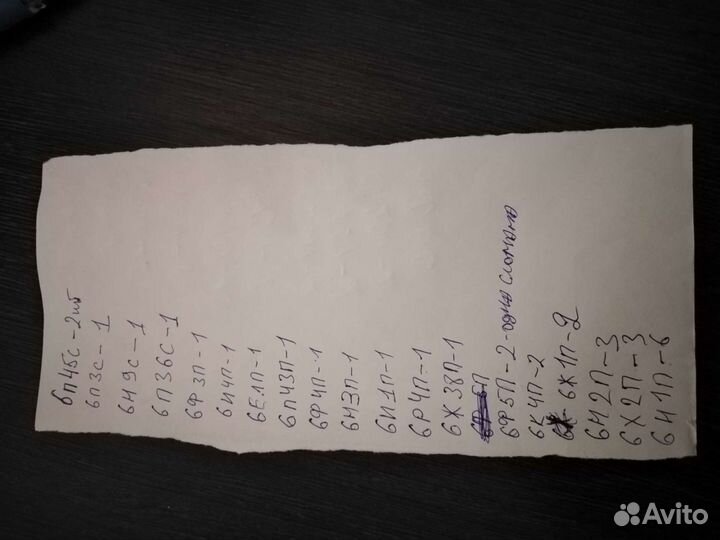 6П45С-2шт
6П3С-1
6Н9С-1
6П36С-1
6Ф3П-1
6И4П-1
6Е1П-1
6П43П-1
6Ф4П-1
6Н3П-1
6И1П-1
6Р4П-1
6Ж38П-1
6Ф5П-2-одна сломана
6К4П-2
6Ж1П-2
6Н2П-3
6Х2П-3
6Н1П-6
Avito